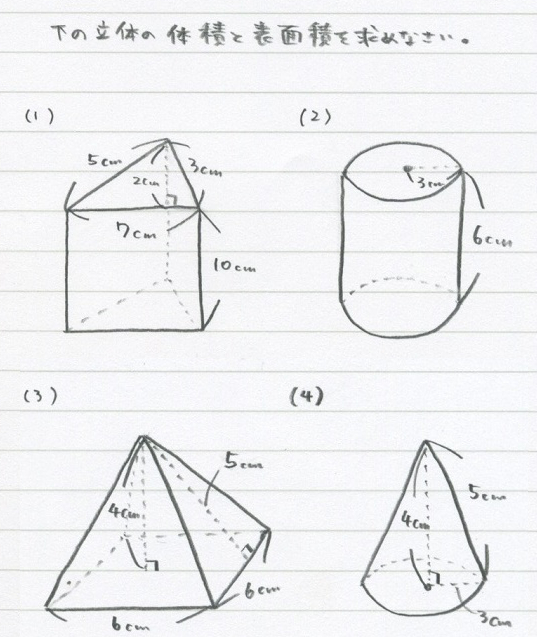 下の立体の体積と表面積を求めなさい。
(1)
(2)
5cm
3cm
2cm
7cm
10cm
3cm
6cm
(3)
(4)
5cm
4cm
6cm
6cm
5cm
4cm
3cm